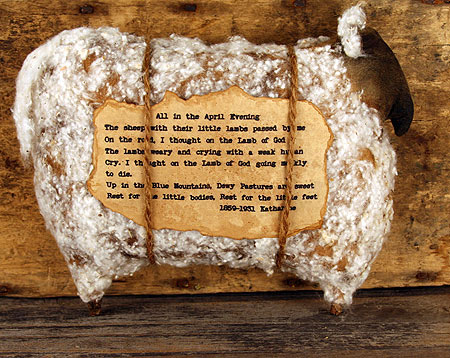 All in the April Evening
The sheep with their little lambs passed by me
On the road, I thought on the Lamb of God
The lambs weary and crying with a weak human
Cry. I thought on the Lamb of God going meekly
to die.
Up in the Blue Mountains, Dewy Pastures are sweet
Rest for the little bodies, Rest for the little feet
1859-1931 Katharine